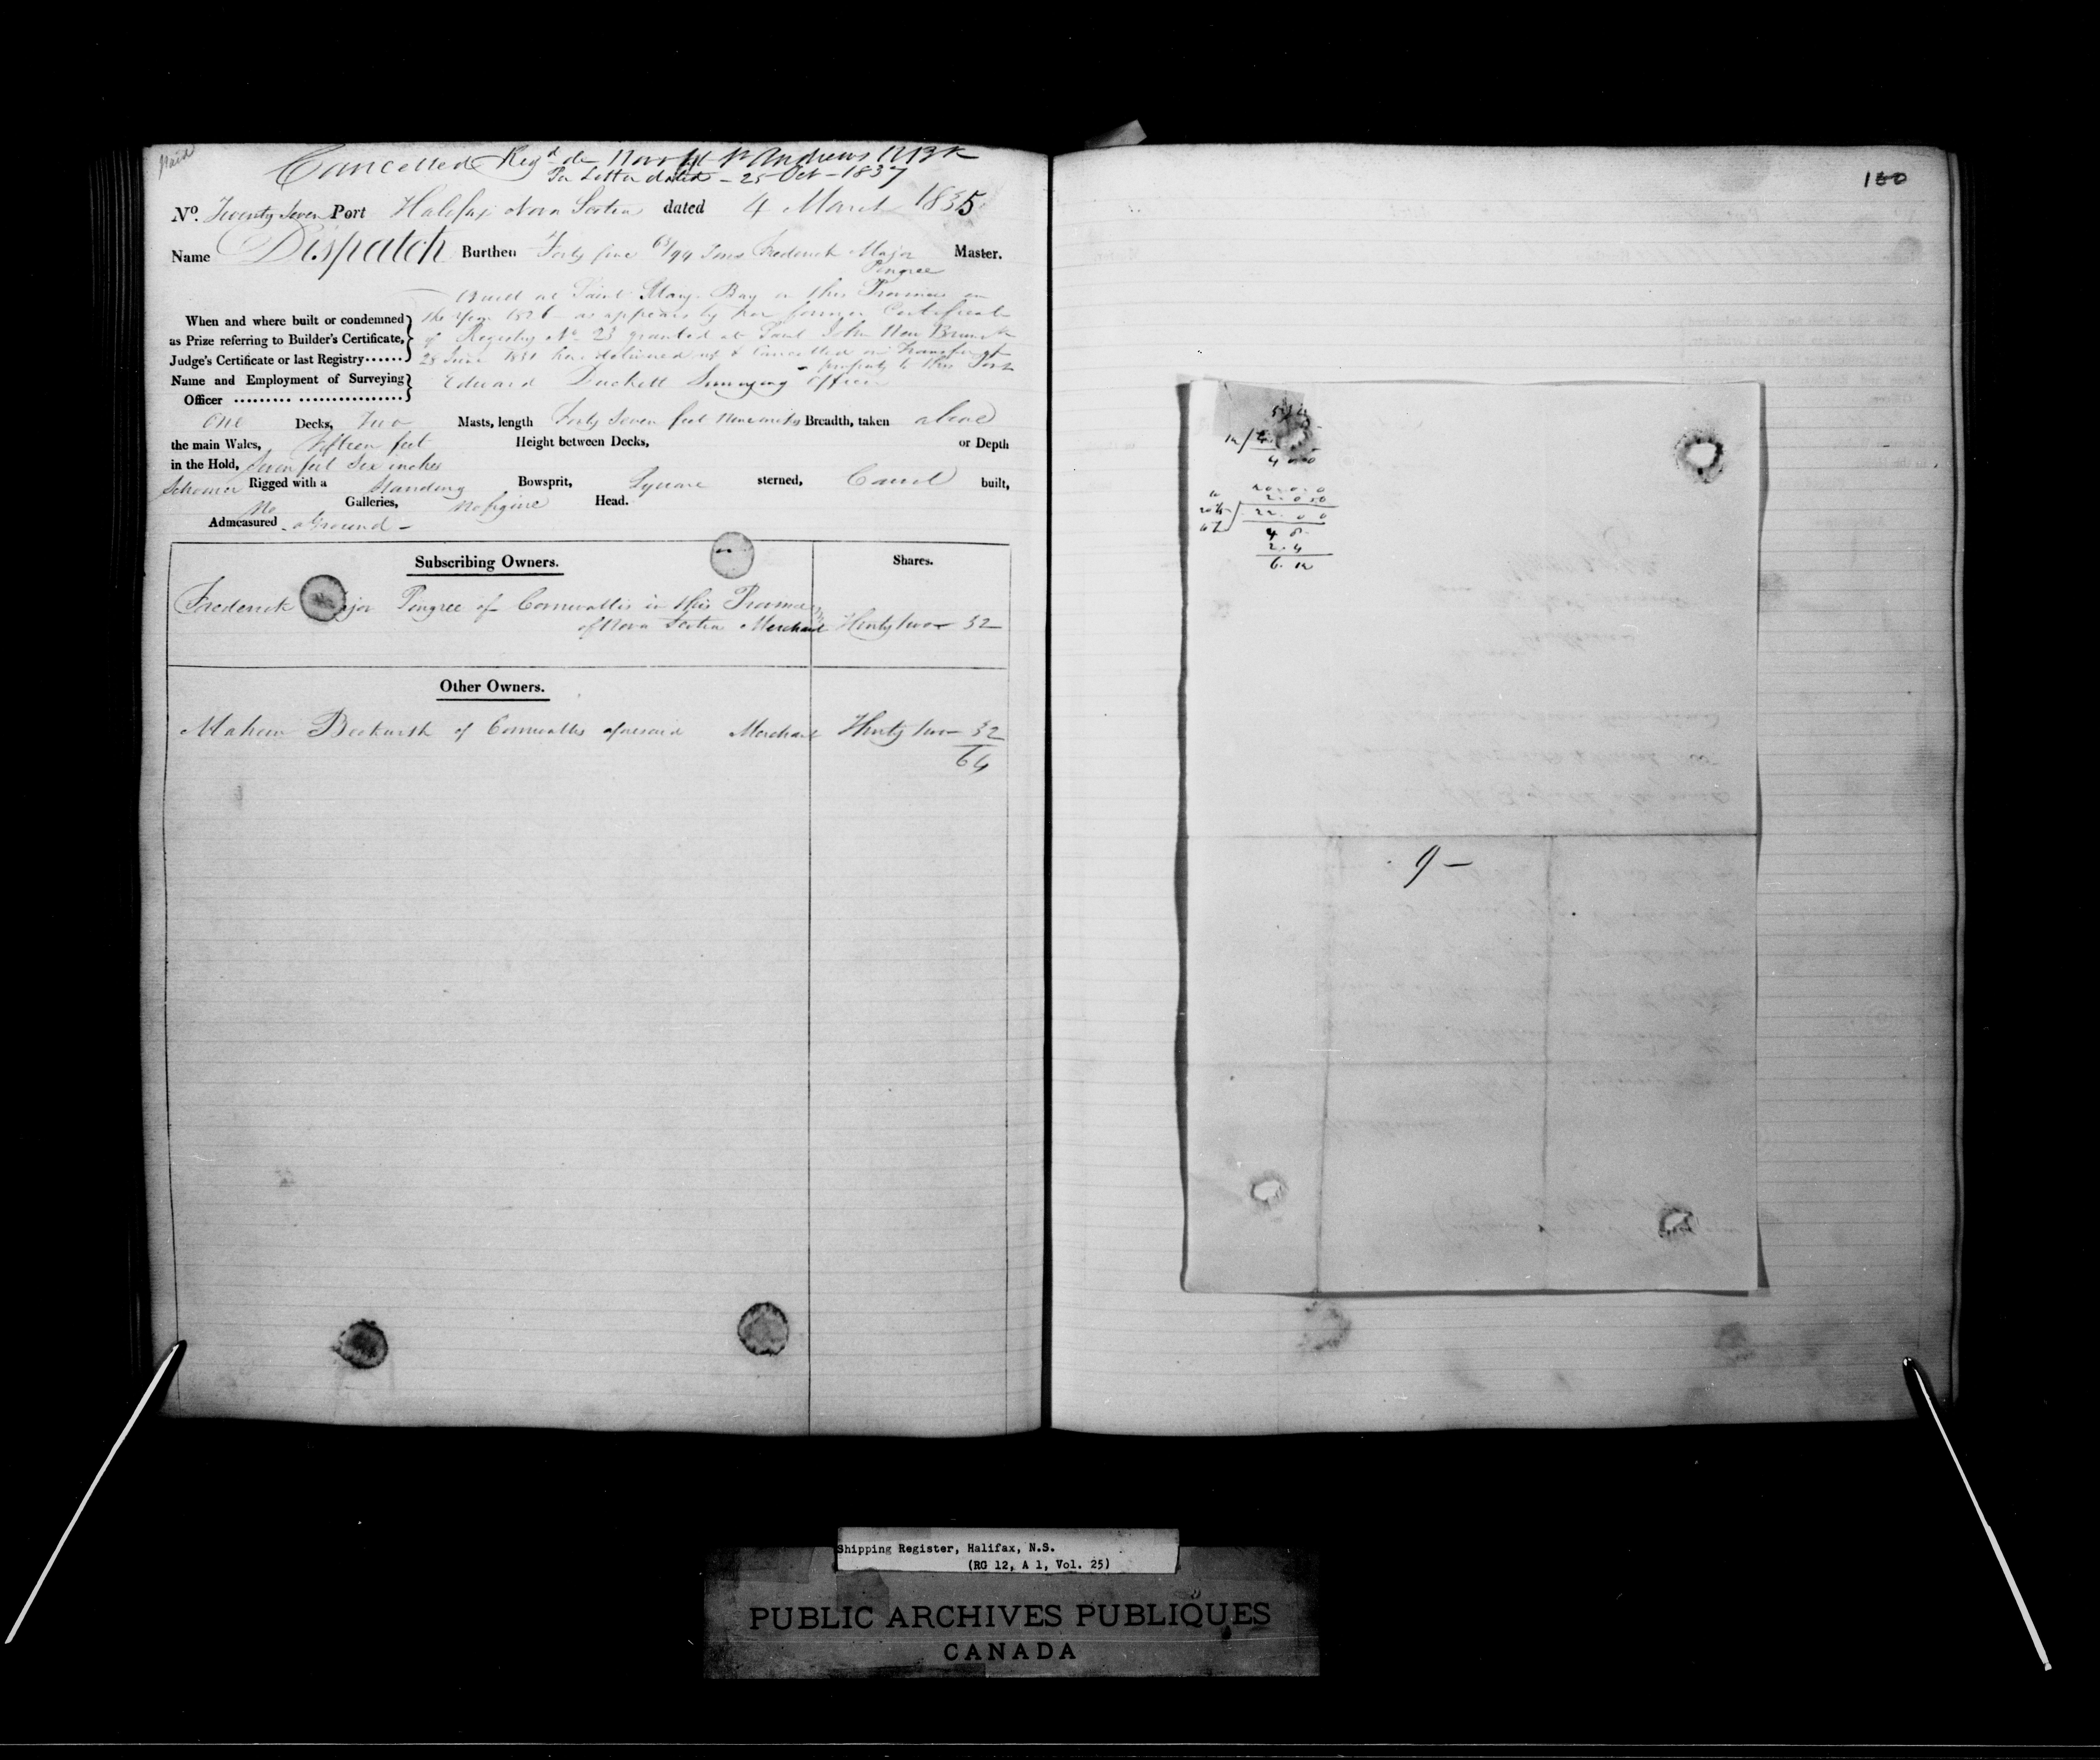 Paid
Cancelled Reg'd de Novo at St Andrews N B k
Per Letter dated - 25 Oct - 1837
No. Twenty Seven Port Halifax Nova Scotia dated 4 March 1835
Name Dispatch Burthen Forty five 65/94 Tons Frederick Major Master.
Pingree
Built at Saint Mary Bay in this Province in
When and where built or condemned the Year 1826 as appears by her former Certificate
as Prize referring to Builder's Certificate, of Registry No 23 granted at Saint John New Brunsk
Judge's Certificate or last Registry...... 28 June 1831 here delivered up & Cancelled on Transfer of
property to this Port
Name and Employment of Surveying Edward Duckett Surveying Officer
Officer ......... ................
One Decks, Two Masts, length Forty Seven feet Nine inches Breadth, taken above
the main Wales, Fifteen feet Height between Decks, or Depth
in the Hold, Seven feet Six inches
Schooner Rigged with a Standing Bowsprit, Square sterned, Carvel built,
No Galleries, No figure Head.
Admeasured a Ground -
Subscribing Owners. Shares.
Frederick Pingree of Cornwallis in this Province
of Nova Scotia Merchant Thirty two 32
Other Owners.
of Cornwallis aforesaid Merchant Thirty two 32
64
160
4 8
2. 4
6. 12
9 -
Shipping Register, Halifax, N.S.
(RG 12, A 1, Vol. 25)
PUBLIC ARCHIVES PUBLIQUES
CANADA